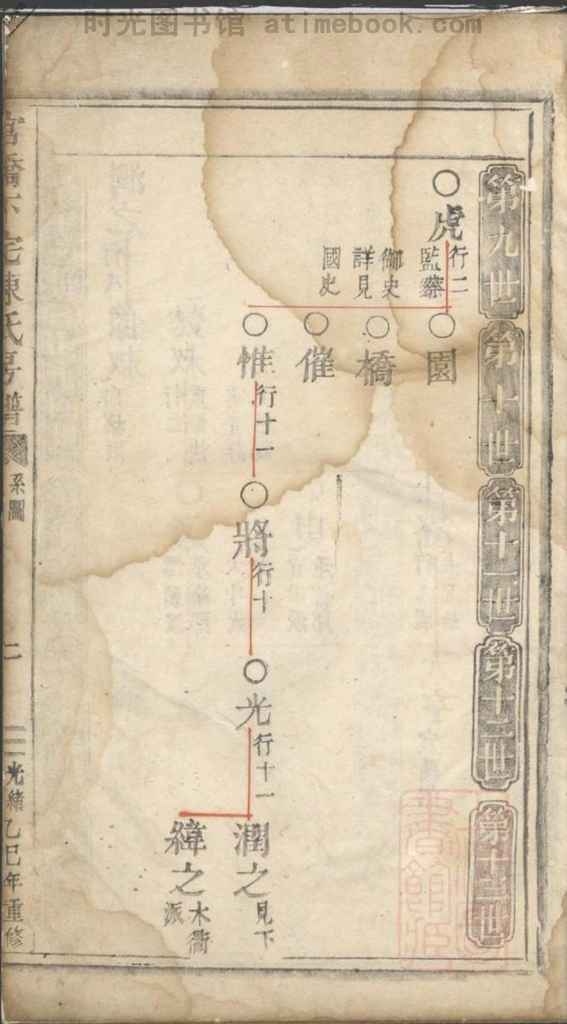 时光图书馆 atimebook.com
第九世
第十世
第十一世
第十二世
第十三世
虎 行二 監察御史詳見國史
園
橋
催
惟 行十一
將 行十
光 行十一
潤之 見下
緯之 木衢派
宅陳氏房譜
系圖
二
光緒乙巳年重修